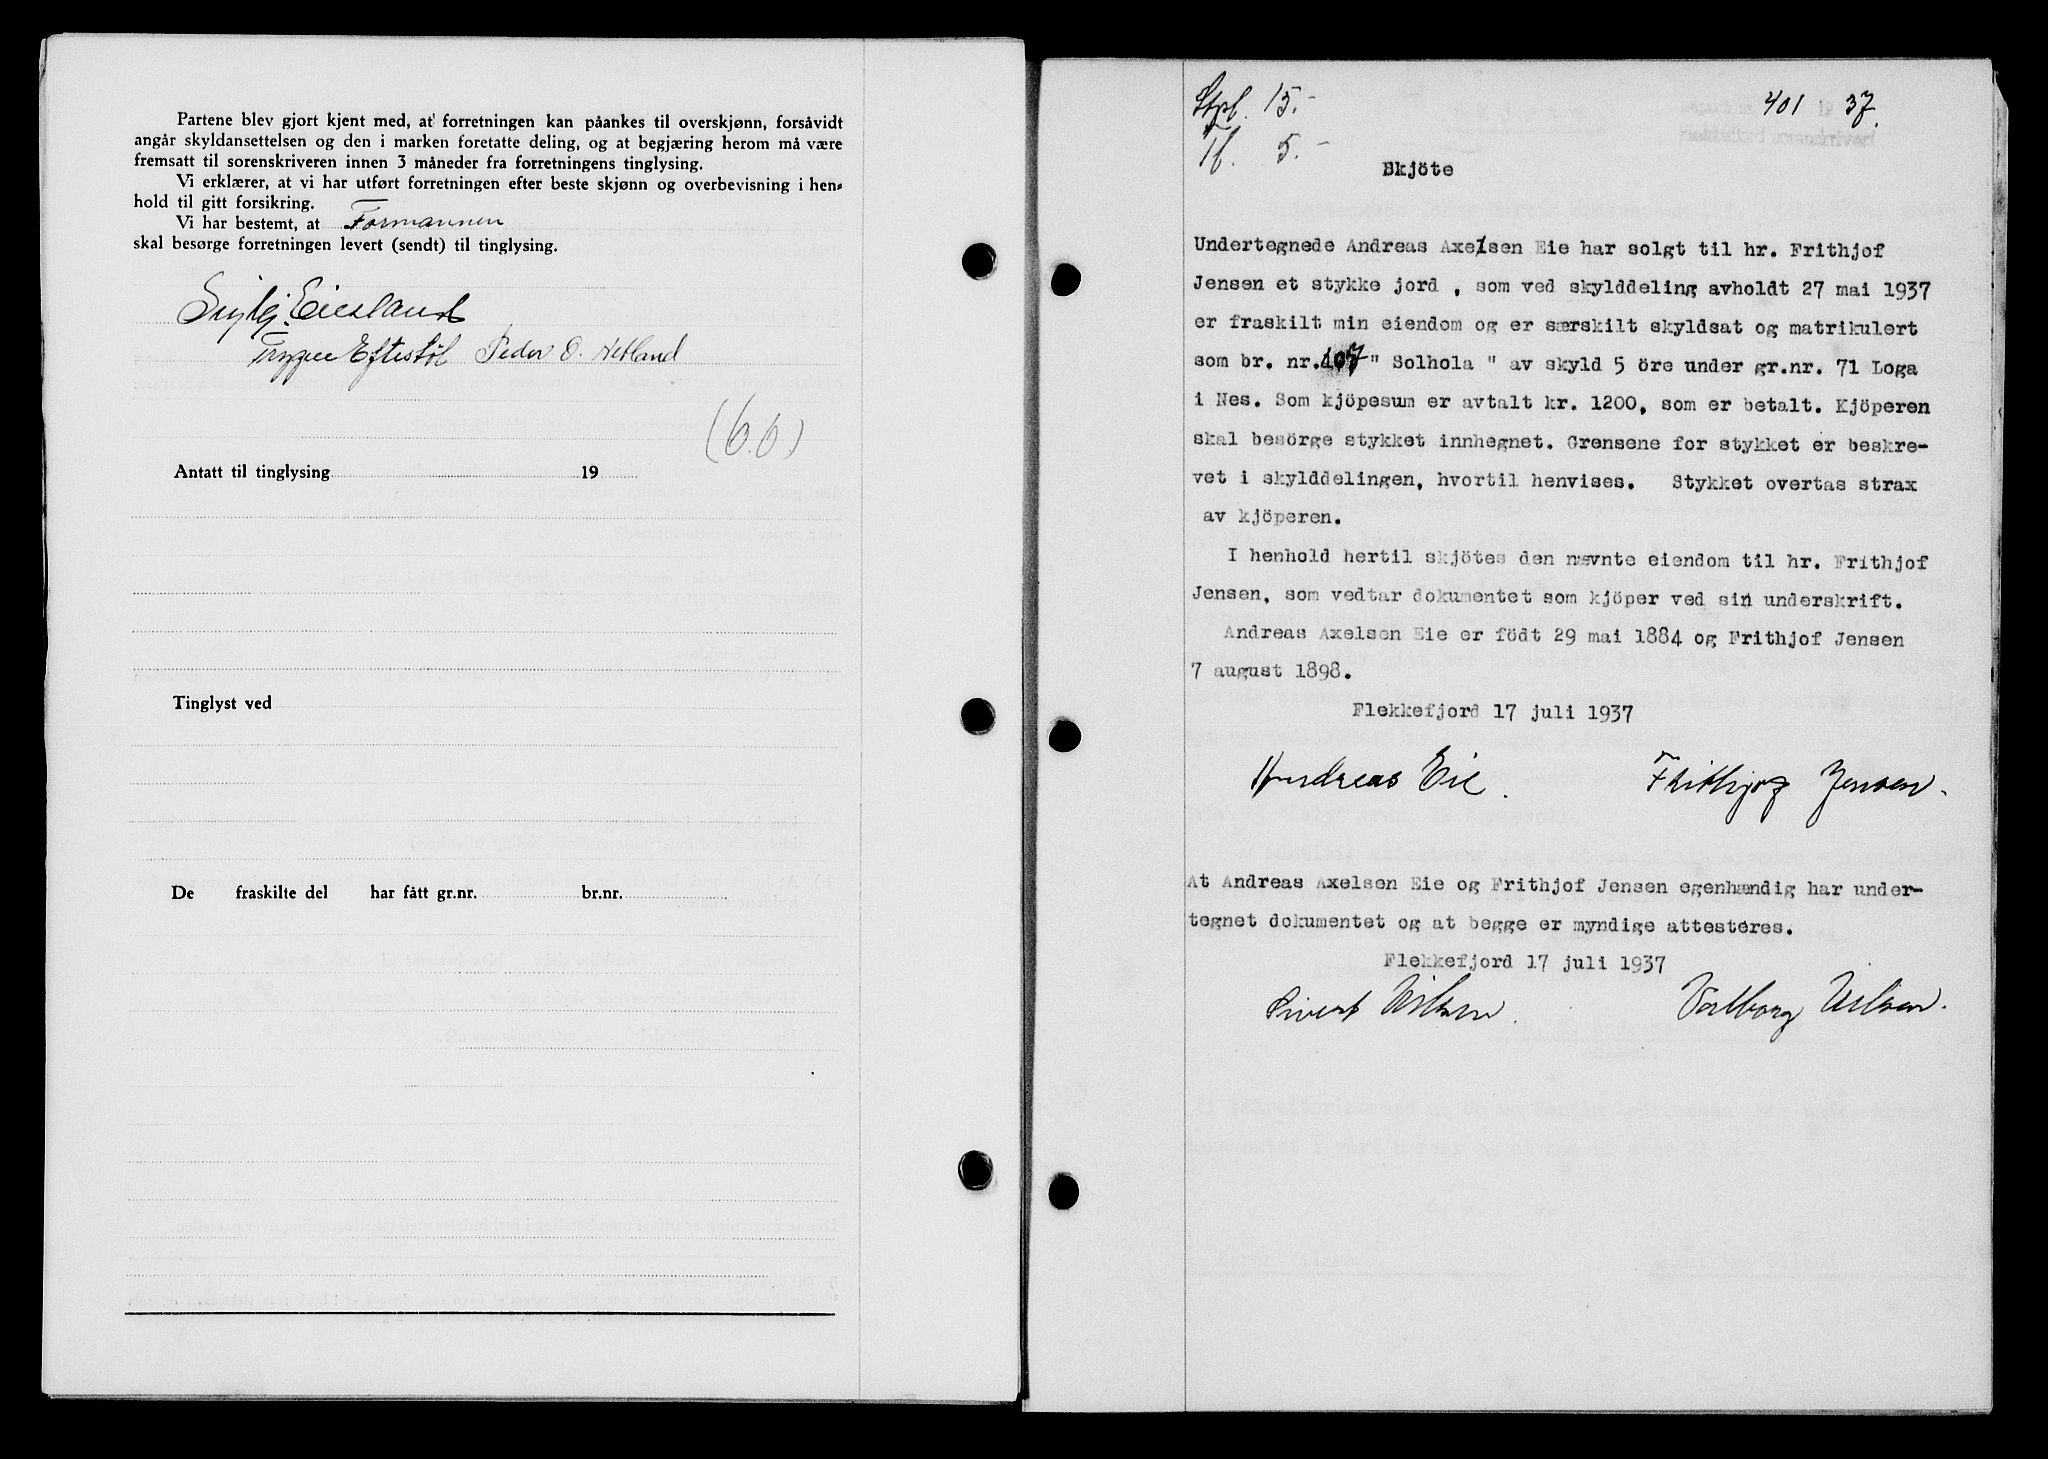 Partene blev gjort kjent med, at forretningen kan påankes til overskjønn, forsåvidt
angår skyldansettelsen og den i marken foretatte deling, og at begjæring herom må være
fremsatt til sorenskriveren innen 3 måneder fra forretningens tinglysing.
Vi erklærer, at vi har utført forretningen efter beste skjønn og overbevisning i hen-
hold til gitt forsikring.
Vi har bestemt, at Formannen
skal besørge forretningen levert (sendt) til tinglysing.
Eiesland
Eftestøl Peder O. Netland
(6.6)
Antatt til tinglysing 19
Tinglyst ved
De fraskilte del har fått gr.nr. br.nr.
Stpl. 15.-
401 37.
Tl. 5.-
Skjöte
Undertegnede Andreas Axelsen Eie har solgt til hr. Frithjof
Jensen et stykke jord , som ved skylddeling avholdt 27 mai 1937
er fraskilt min eiendom og er særskilt skyldsat og matrikulert
som br. nr.107 " Solhola " av skyld 5 öre under gr.nr. 71 Loga
i Nes. Som kjöpesum er avtalt kr. 1200, som er betalt. Kjöperen
skal besörge stykket innhegnet. Grensene for stykket er beskre-
vet i skylddelingen, hvortil henvises. Stykket overtas strax
av kjöperen.
I henhold hertil skjötes den nævnte eiendom til hr. Frithjof
Jensen, som vedtar dokumentet som kjöper ved sin underskrift.
Andreas Axelsen Eie er födt 29 mai 1884 og Frithjof Jensen
7 august 1898.
Flekkefjord 17 juli 1937
Andreas Eie. Frithjof Jensen.
At Andreas Axelsen Eie og Frithjof Jensen egenhændig har under-
tegnet dokumentet og at begge er myndige attesteres.
Flekkefjord 17 juli 1937
Sivert Nilsen. Valborg Nilsen.